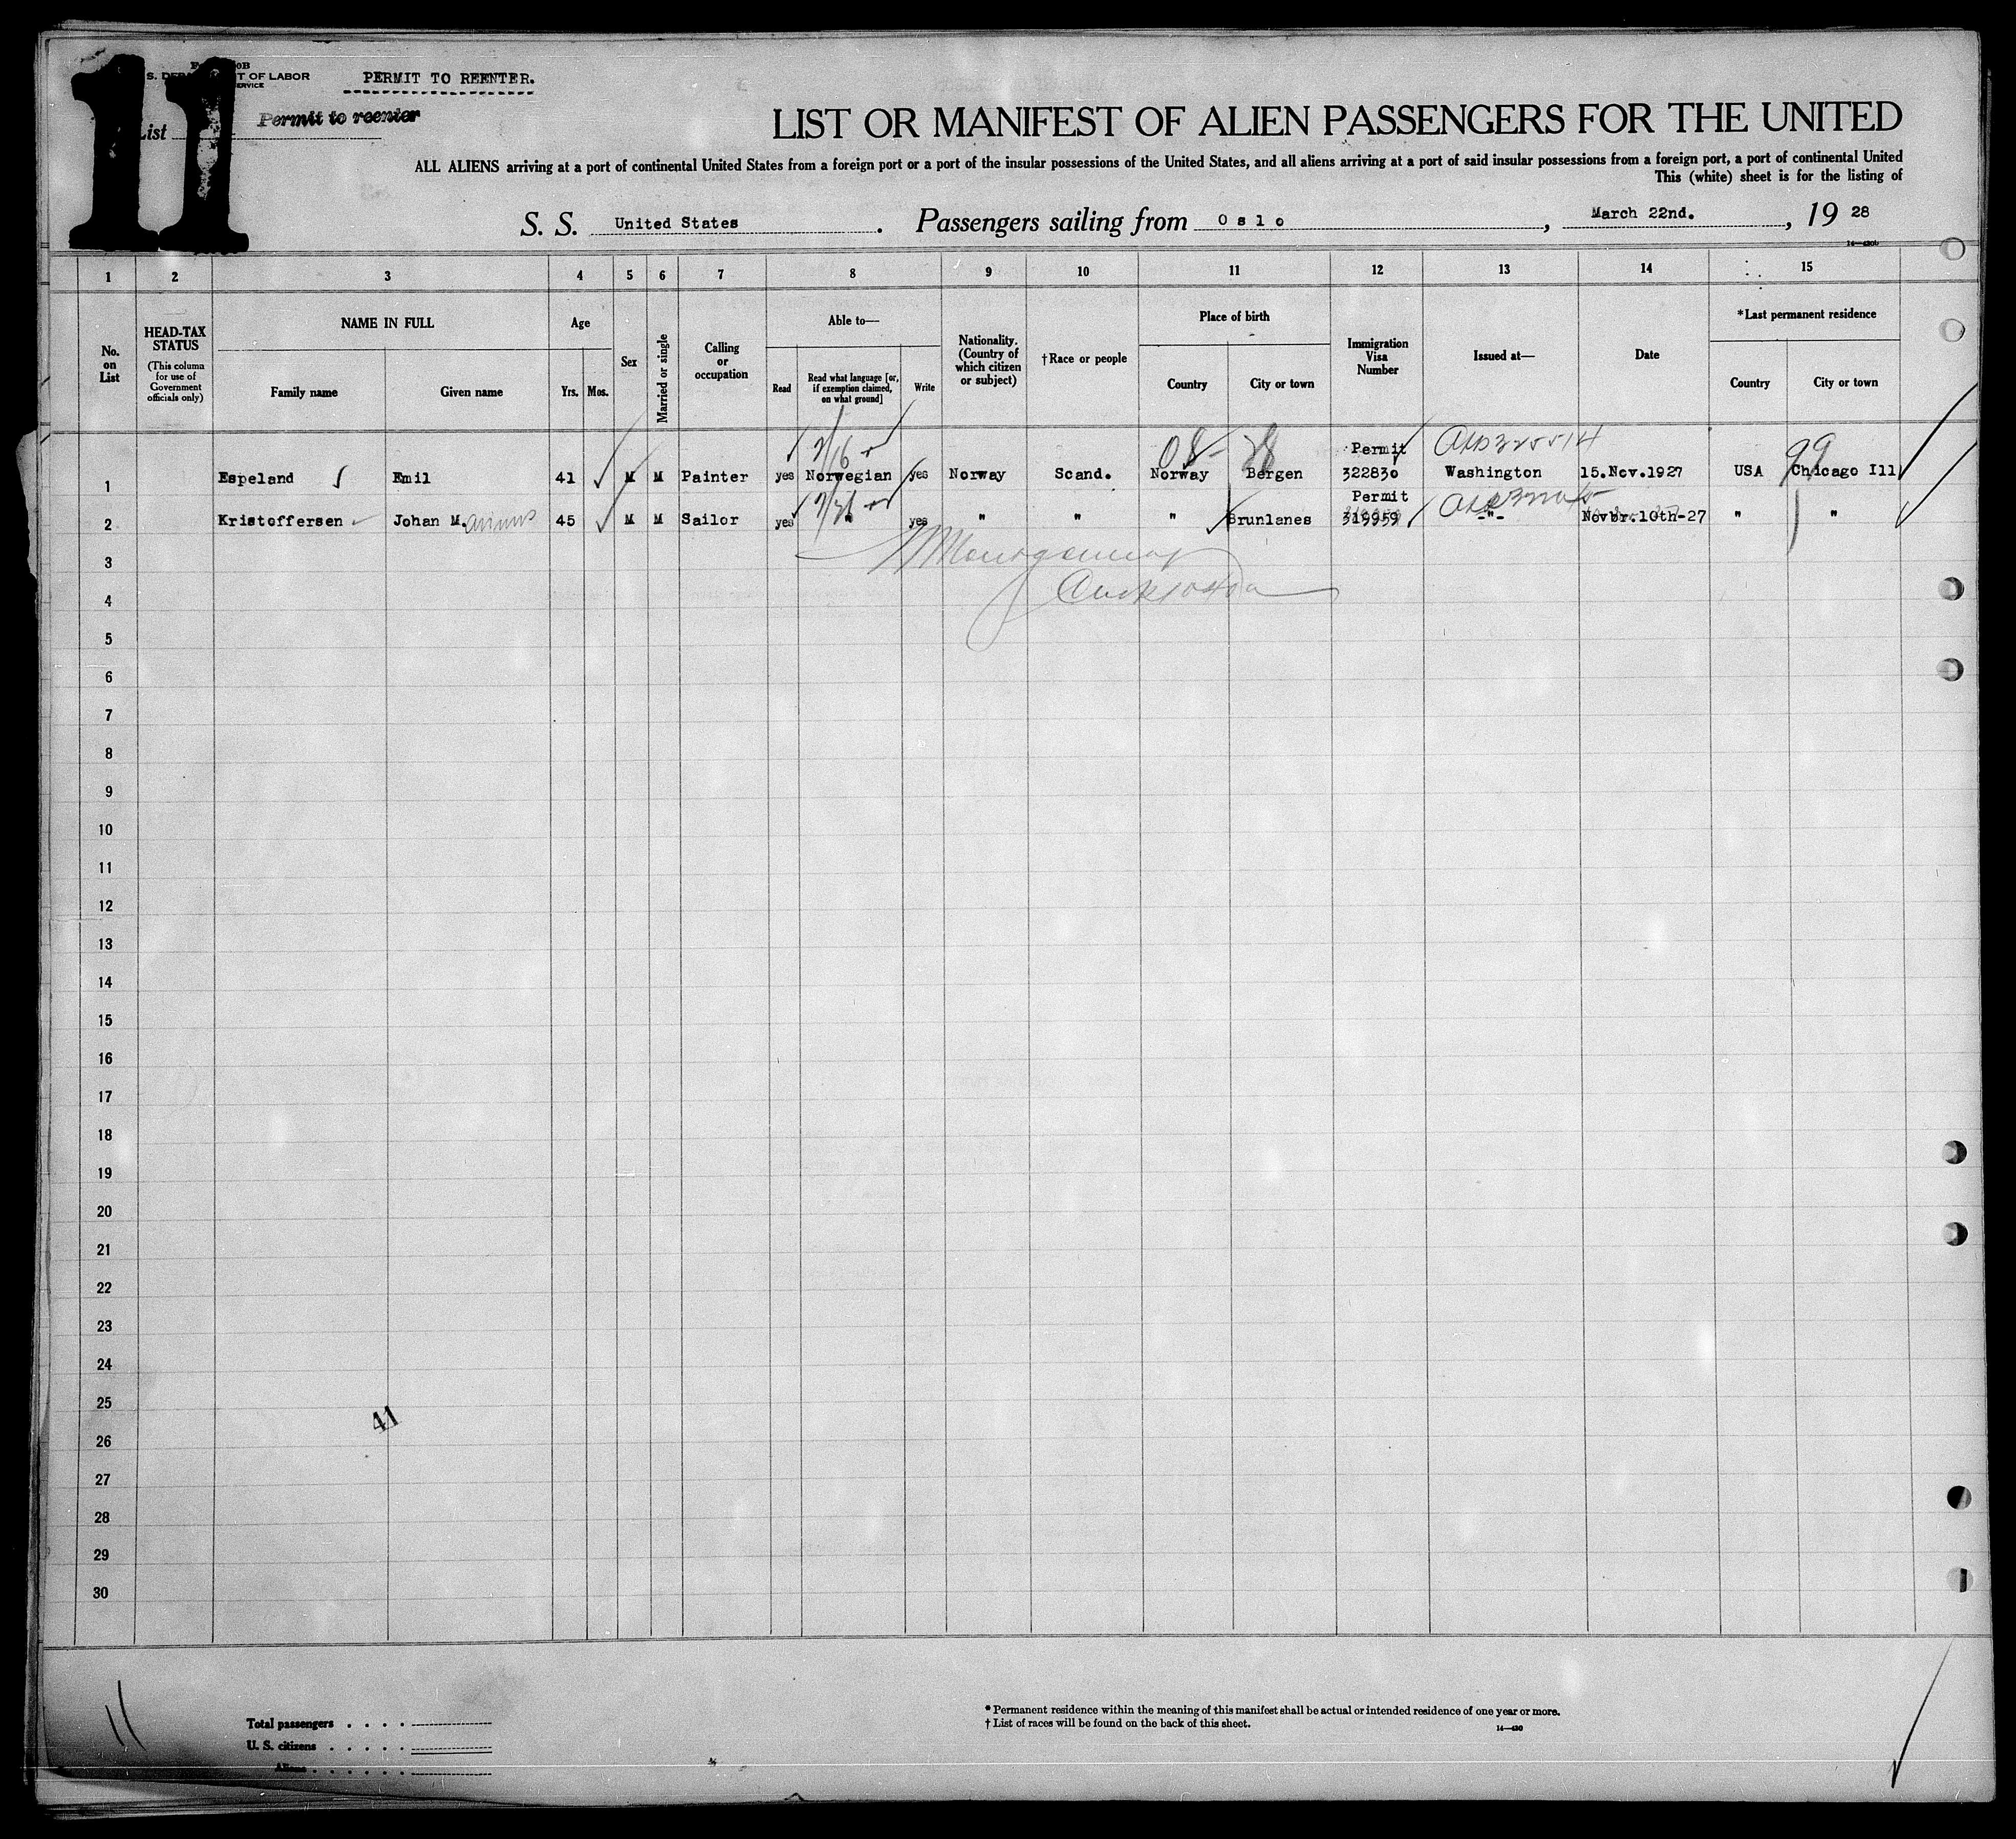 11
OF LABOR
PERMIT TO REENTER.
SERVICE
List Permit to reenter
LIST OR MANIFEST OF ALIEN PASSENGERS FOR THE UNITED
ALL ALIENS arriving at a port of continental United States from a foreign port or a port of the insular possessions of the United States, and all aliens arriving at a port of said insular possessions from a foreign port, a port of continental United
This (white) sheet is for the listing of
S. S. United States. Passengers sailing from Oslo, March 22nd., 19 28
1 2 3 4 5 6 7 8 9 10 11 12 13 14 15
No. on List
HEAD-TAX STATUS
(This column for use of Government officials only)
NAME IN FULL
Family name Given name
Age
Yrs. Mos.
Sex
Married or single
Calling or occupation
Able to—
Read
Read what language [or, if exemption claimed, on what ground]
Write
Nationality. (Country of which citizen or subject)
†Race or people
Place of birth
Country City or town
Immigration Visa Number
Issued at—
Date
*Last permanent residence
Country City or town
08- 28 Permit 99
1 Espeland Emil 41 M M Painter yes Norwegian yes Norway Scand. Norway Bergen 322830 Washington 15.Nov.1927 USA Chicago Ill
Permit
2 Kristoffersen Johan M.arinus 45 M M Sailor yes " yes " " " Brunlanes 319959 -"- Novbr.10th-27 " "
3
4
5
6
7
8
9
10
11
12
13
14
15
16
17
18
19
20
21
22
23
24
25
41
26
27
28
29
30
11
Total passengers
U. S. citizens
Aliens
* Permanent residence within the meaning of this manifest shall be actual or intended residence of one year or more.
† List of races will be found on the back of this sheet.
14—430